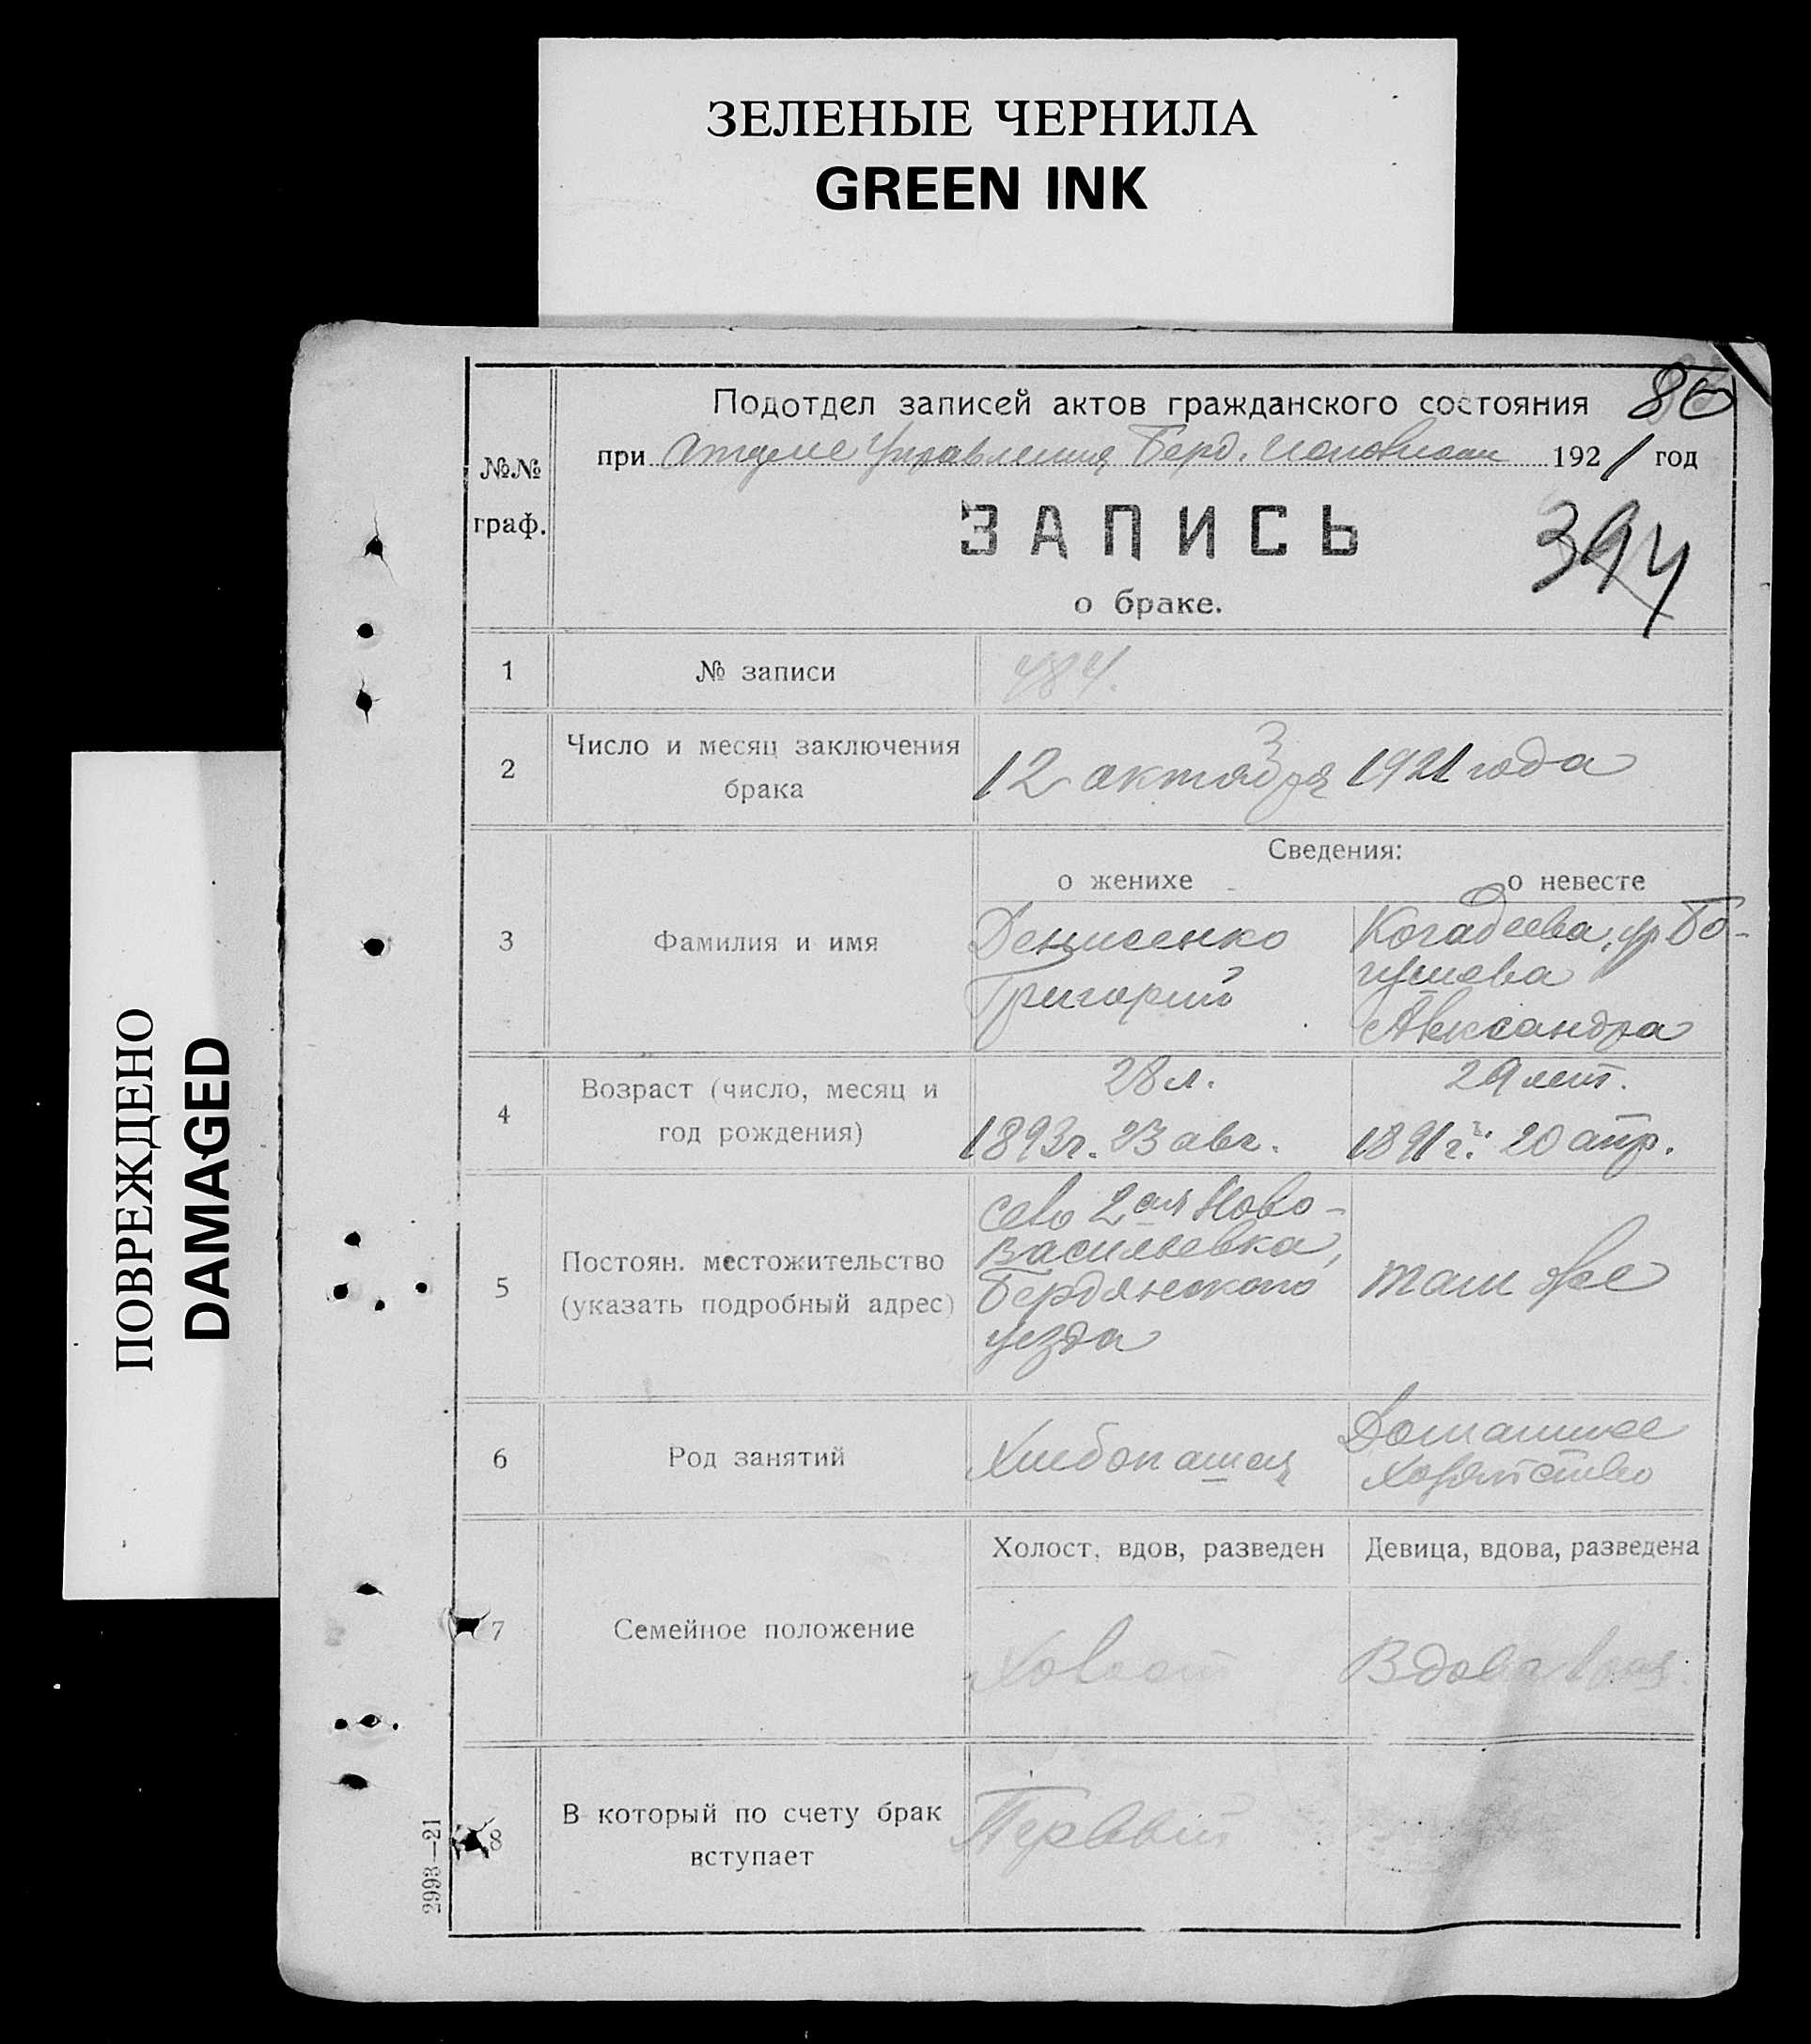 ЗЕЛЕНЫЕ ЧЕРНИЛА
GREEN INK
ПОВРЕЖДЕНО
DAMAGED
86
Подотдел записей актов гражданского состояния
при отделе Управления Берд. 1921 год
№№
граф.
ЗАПИСЬ
394
о браке.
1 № записи 484.
2 Число и месяц заключения
брака
12 октября 1921 года
Сведения:
о женихе о невесте
3 Фамилия и имя
Денисенко
Григорий
ур Бо-
гушева
Александра
4 Возраст (число, месяц и
год рождения)
28 л. 29 лет.
1893г. 23 авг. 1891г. 20 апр.
5 Постоян. местожительство
(указать подробный адрес)
село 2ая Ново-
Васильевка,
Бердянского
уезда
там же
6 Род занятий
Хлебопашец
Домашнее
хозяйство
7 Семейное положение
Холост, вдов, разведен Девица, вдова, разведена
Холост Вдова
8 В который по счету брак
вступает
Первый
2993—21